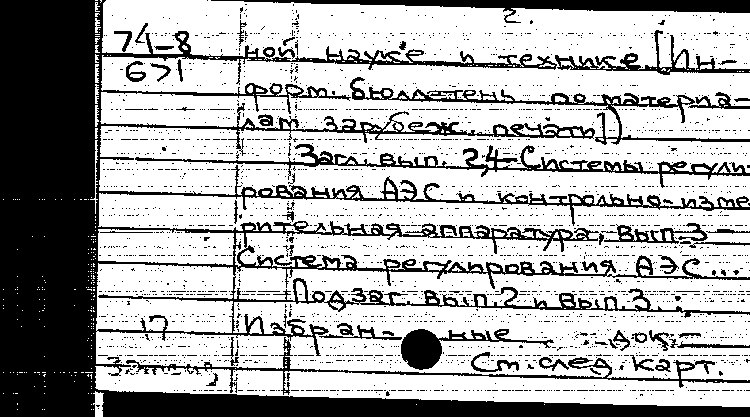 2.
74-8 ной науке и технике [Ин-
671 форм. бюллетень по материа-
лам зарубеж. печати]).
Загл. вып. 2,4-Системы регули-
рования АЭС и контрольно-изме-
рительная аппаратура, вып.3 -
Система регулирования АЭС...
Подзаг. вып.2 и вып.3. :
17 Избран- ные док.-
См.след.карт.